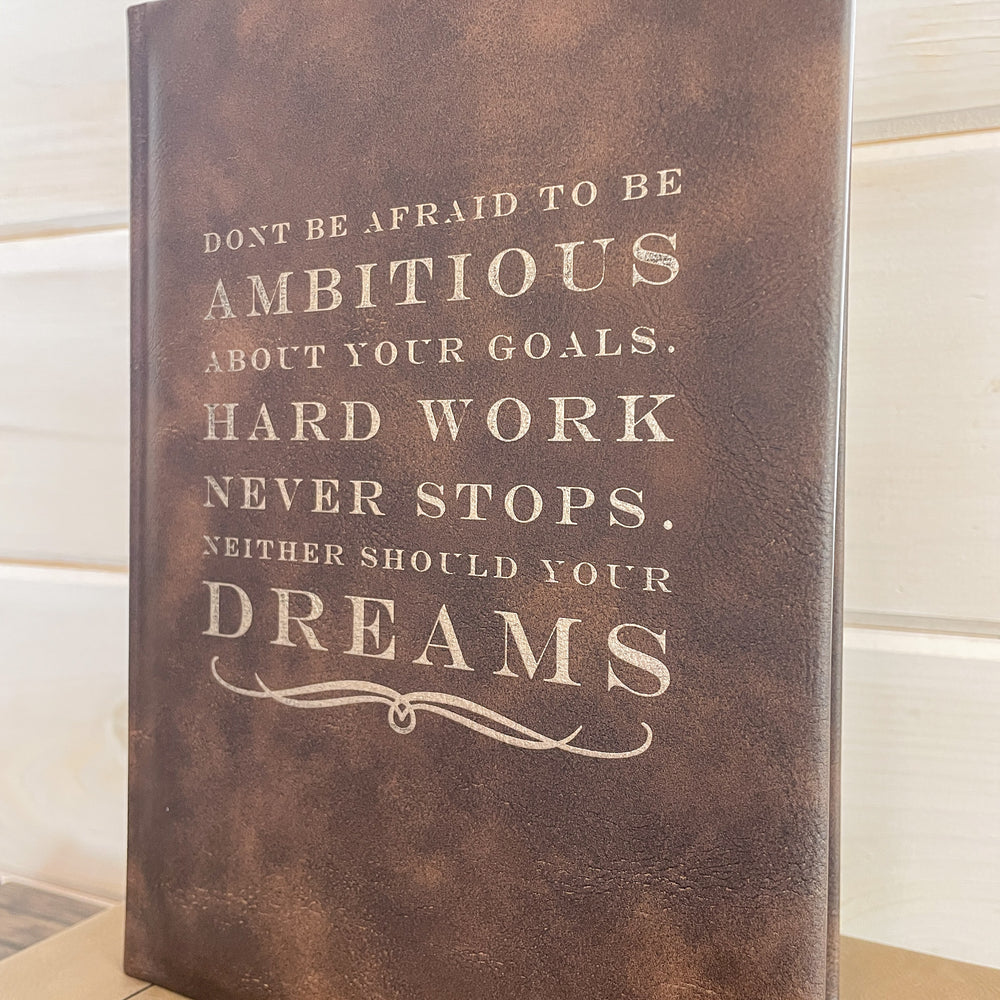 DONT BE AFRAID TO BE
AMBITIOUS
ABOUT YOUR GOALS.
HARD WORK
NEVER STOPS.
NEITHER SHOULD YOUR
DREAMS